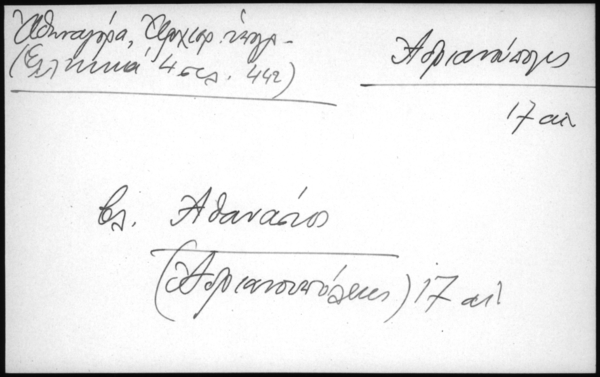 Ἀθηναγόρα, Ἀρχιερ. ὑπογρ-
(Ἑλληνικά 4 σελ. 442)
Ἀδριανούπολις
17 αἰ.
βλ. Ἀθανάσιος
(Ἀδριανουπόλεως) 17 αἰ.